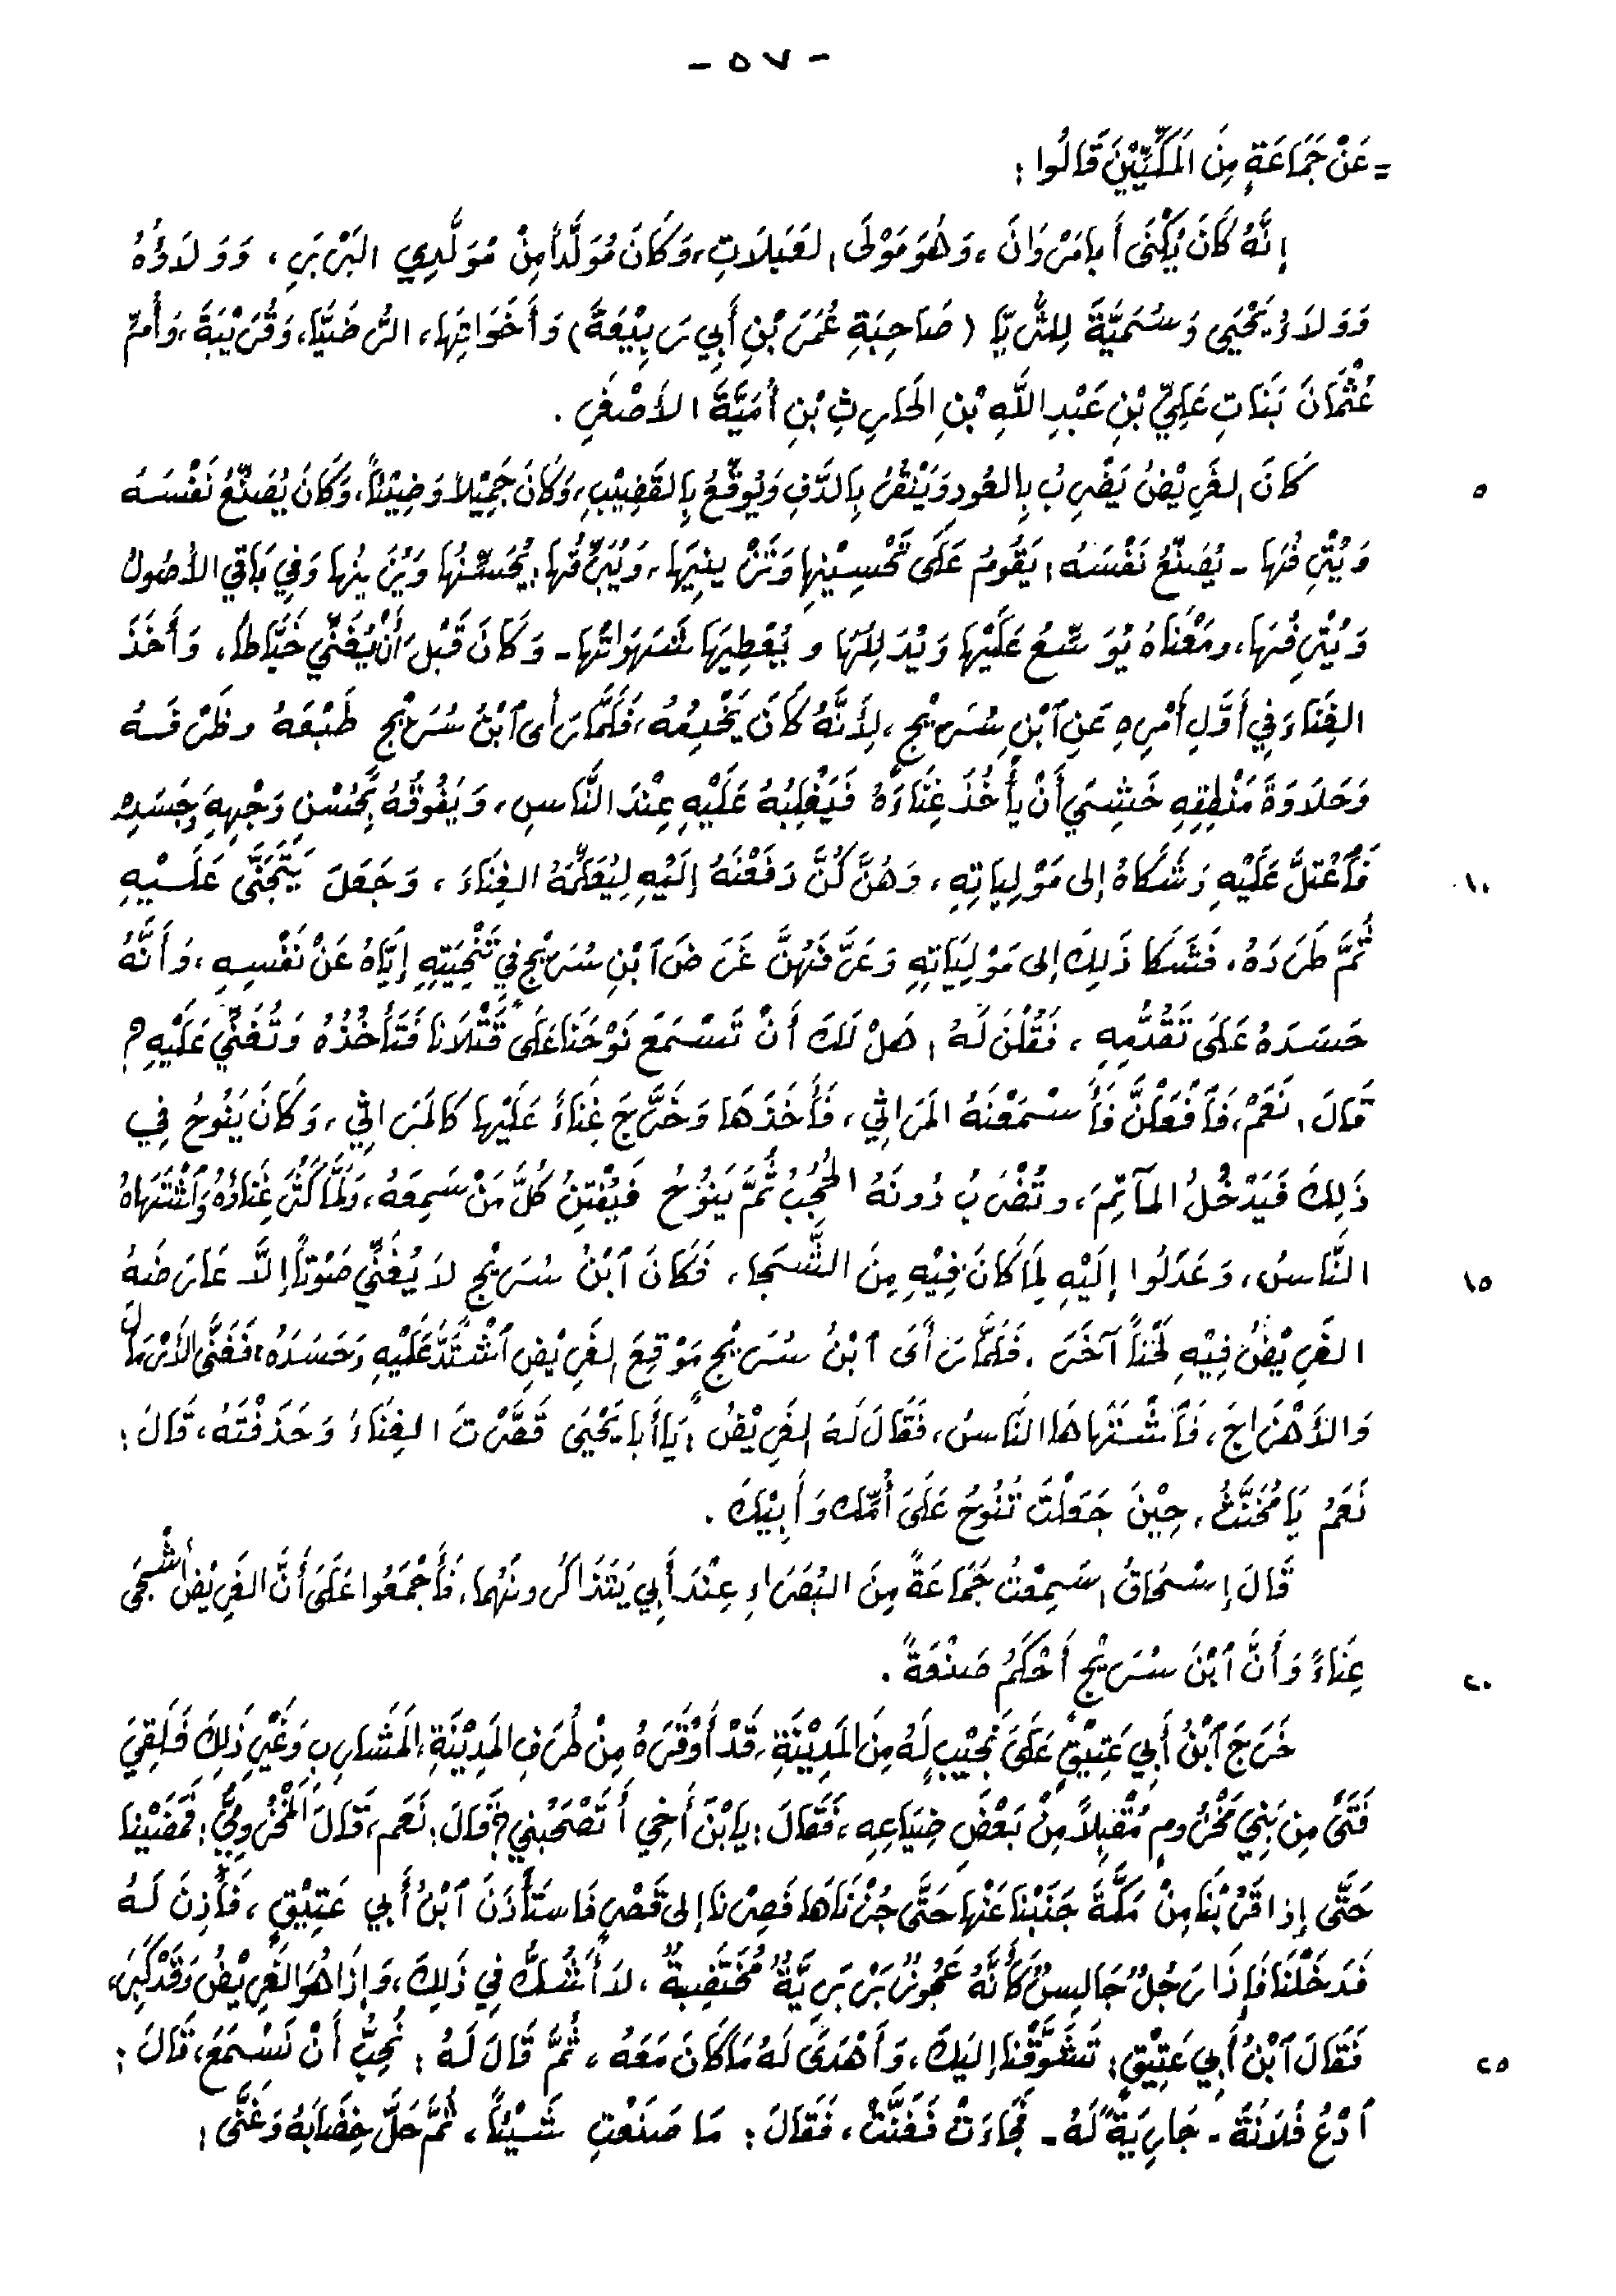 - ٥٧ -
= عَنْ جَمَاعَةٍ مِنَ المَكِّيِّيْنَ قَالُوا :
إِنَّهُ كَانَ يُكْنَى أَبا مَرْوَانَ ، وَهُوَ مَوْلَى العَبَلَاتِ ، وَكَانَ مُوَلَّداً مِنْ مُوَلَّدِي البَرْبَرِ ، وَوَلاَؤُهُ
وَوَلاَءُ يَحْيَى وَسُمَيَّةَ لِلثُّرَيَّا ( صَاحِبَةِ عُمَرَ بْنِ أَبِي رَبِيْعَةَ ) وَأَخَوَاتِهَا ، الرُّضَيَّا ، وَقُرَيْبَةَ ، وَأُمِّ
عُثْمَانَ بَنَاتِ عَلِيِّ بْنِ عَبْدِ اللَّهِ بْنِ الحَارِثِ بْنِ أُمَيَّةَ الأَصْغَرِ .
كَانَ الغَرِيْضُ يَضْرِبُ بِالعُودِ وَيَنْقُرُ بِالدَّفِ وَيُوَقِّعُ بِالقَضِيْبِ ، وَكَانَ جَمِيْلاً وَضِيْئاً ، وَكَانَ يُصَنِّعُ نَفْسَهُ
٥
وَيُتْرِفُهَا - يُصَنِّعُ نَفْسَهُ : يَقُومُ عَلَى تَحْسِيْنِهَا وَتَزْيِينِيَهَا ، وَيُبَرِّقُهَا : يُحَسِّنُهَا وَيُزَيِنُهَا وَفِي بَاقِي الأُصُولِ
وَيُتْرِفُهَا ، ومَعْنَاهُ يُوَسِّعُ عَلَيْهَا وَيُدَلِلُهَا وَيُعْطِيَهَا شَهَوَاتُهَا - وَكَانَ قَبْلَ أَنْ يُغَنِّي خَيَّاطاً ، وَأَخَذَ
الغِنَاءَ فِي أَوَّلِ أَمْرِهِ عَنِ ٱبْنِ سُرَيْجٍ ، لِأَنَّهُ كَانَ يَخْدِمُهُ ، فَلَمَّا رَأَى ٱبْنُ سُرَيْجٍ طَبْعَهُ وظَرْفَهُ
وَحَلَاوَةَ مَنْطِقِهِ خَشِيَ أَنْ يَأْخُذَ غِنَاءَهُ فَيَغْلِبُهُ عَلَيْهِ عِنْدَ النَّاسِ ، وَيَفُوقُهُ بِحُسْنِ وَجْهِهِ وَجَسَدِهِ
فَٱعْتَلَّ عَلَيْهِ وَشَكَاهُ إِلى مَوْلِيَاتِهِ ، وَهُنَّ كُنَّ دَفَعْنَهُ إِلَيْهِ لِيُعَلِّمَهُ الغِنَاءَ ، وَجَعَلَ يَتَجَنَّى عَلَيْهِ
١٠
ثُمَّ طَرَدَهُ ، فَشَكَا ذَلِكَ إِلى مَوْلِيَاتِهِ وَعَرَّفَهُنَّ غَرَضَ ٱبْنِ سُرَيْجٍ فِي تَنْحِيَتِهِ إِيَّاهُ عَنْ نَفْسِهِ ، وَأَنَّهُ
حَسَدَهُ عَلَى تَقَدُّمِهِ ، فَقُلْنَ لَهُ : هَلْ لَكَ أَنْ تَسْمَعَ نَوْحَنَا عَلَى قَتْلَانَا فَتَأْخُذُهُ وَتُغَنِّي عَلَيْهِ ؟
قَالَ : نَعَمْ ، فَٱفْعَلْنَ فَأَسْمَعْنَهُ المَرَاثِي ، فَأَخَذَهَا وَخَرَّجَ غِنَاءً عَلَيْهَا كَالمَرَاثِي ، وَكَانَ يَنُوحُ فِي
ذَلِكَ فَيَدْخُلُ المَآتِمَ ، وتُضْرَبُ دُونَهُ الحُجُبُ ثُمَّ يَنُوحُ فَيُفْتِنُ كُلَّ مَنْ سَمِعَهُ ، وَلَمَّا كَثُرَ غِنَاؤُهُ وَٱشْتَهَاهُ
النَّاسُ ، وَعَدَلُوا إِلَيْهِ لِمَا كَانَ فِيْهِ مِنَ الشَّجَا ، فَكَانَ ٱبْنُ سُرَيْجٍ لاَ يُغَنِّي صَوْتاً إِلَّا عَارَضَهُ
١٥
الغَرِيْضُ فِيْهِ لَحْناً آخَرَ . فَلَمَّا رَأَى ٱبْنُ سُرَيْجٍ مَوْقِعَ الغَرِيْضِ ٱشْتَدَّ عَلَيْهِ وَحَسَدَهُ ، فَغَنَّى الأَرْمَالَ
وَالأَهْزَاجَ ، فَٱشْتَهَاهَا النَّاسُ ، فَقَالَ لَهُ الغَرِيْضُ : يَا أَبا يَحْيَى قَصَّرْتَ الغِنَاءَ وَحَذَفْتَهُ ، قَالَ :
نَعَمْ يَا مُخَنَّثُ ، حِيْنَ جَعَلْتَ تَنُوحُ عَلَى أُمِّكَ وَأَبِيْكَ .
قَالَ إِسْحَاقُ : سَمِعْتُ جَمَاعَةً مِنَ البُصَرَاءِ عِنْدَ أَبِي يَتَذَاكَرُونَهُمَا ، فَأَجْمَعُوا عَلَى أَنَّ الغَرِيْضَ أَشْجَى
غِنَاءً وَأَنَّ ٱبْنَ سُرَيْجٍ أَحْكَمُ صَنْعَةً .
٢٠
خَرَجَ ٱبْنُ أَبِي عَتِيْقٍ عَلَى نَجِيْبٍ لَهُ مِنَ المَدِيْنَةِ ، قَدْ أَوْقَرَهُ مِنْ طُرَفِ المَدِيْنَةِ المَشَارِبِ وَغَيْرِ ذَلِكَ فَلَقِيَ
فَتًى مِنْ بَنِي مَخْزُومٍ مُقْبِلاً مِنْ بَعْضِ ضِيَاعِهِ ، فَقَالَ : يا بْنَ أَخِي أَتَصْحَبُنِي ؟ قَالَ : نَعَم ، قَالَ المَخْزُومِيُّ : فَمَضَيْنا
حَتَّى إِذا قَرُبْنَا مِنْ مَكَّةَ جَنَبْنَا عَنْهَا حَتَّى جُزْنَاهَا فَصِرْنَا إِلى قَصْرٍ فَاسْتَأْذَنَ ٱبْنُ أَبِي عَتِيْقٍ ، فَأَذِنَ لَهُ
فَدَخَلْنَا فَإِذَا رَجُلٌ جَالِسٌ كَأَنَّهُ عَجُوزٌ بَرْبَرِيَّةٌ مُخْتَضِبَةٌ ، لاَ أَشُكُّ فِي ذَلِكَ ، وَإِذَا هُوَ الغَرِيْضُ وَقَدْ كَبِرَ ،
فَقَالَ ٱبْنُ أَبِي عَتِيْقٍ : تَشَوَّقْنا إِلَيْكَ ، وَأَهْدَى لَهُ مَا كَانَ مَعَهُ ، ثُمَّ قَالَ لَهُ : نُحِبُّ أَنْ نَسْمَعَ ، قَالَ :
٢٥
ٱدْعُ فُلَانَةَ - جَارِيَةً لَهُ - فَجَاءَتْ فَغَنَّتْ ، فَقَالَ : مَا صَنَعْتِ شَيْئاً ، ثُمَّ حَلَّ خِضَابَهُ وَغَنَّى :